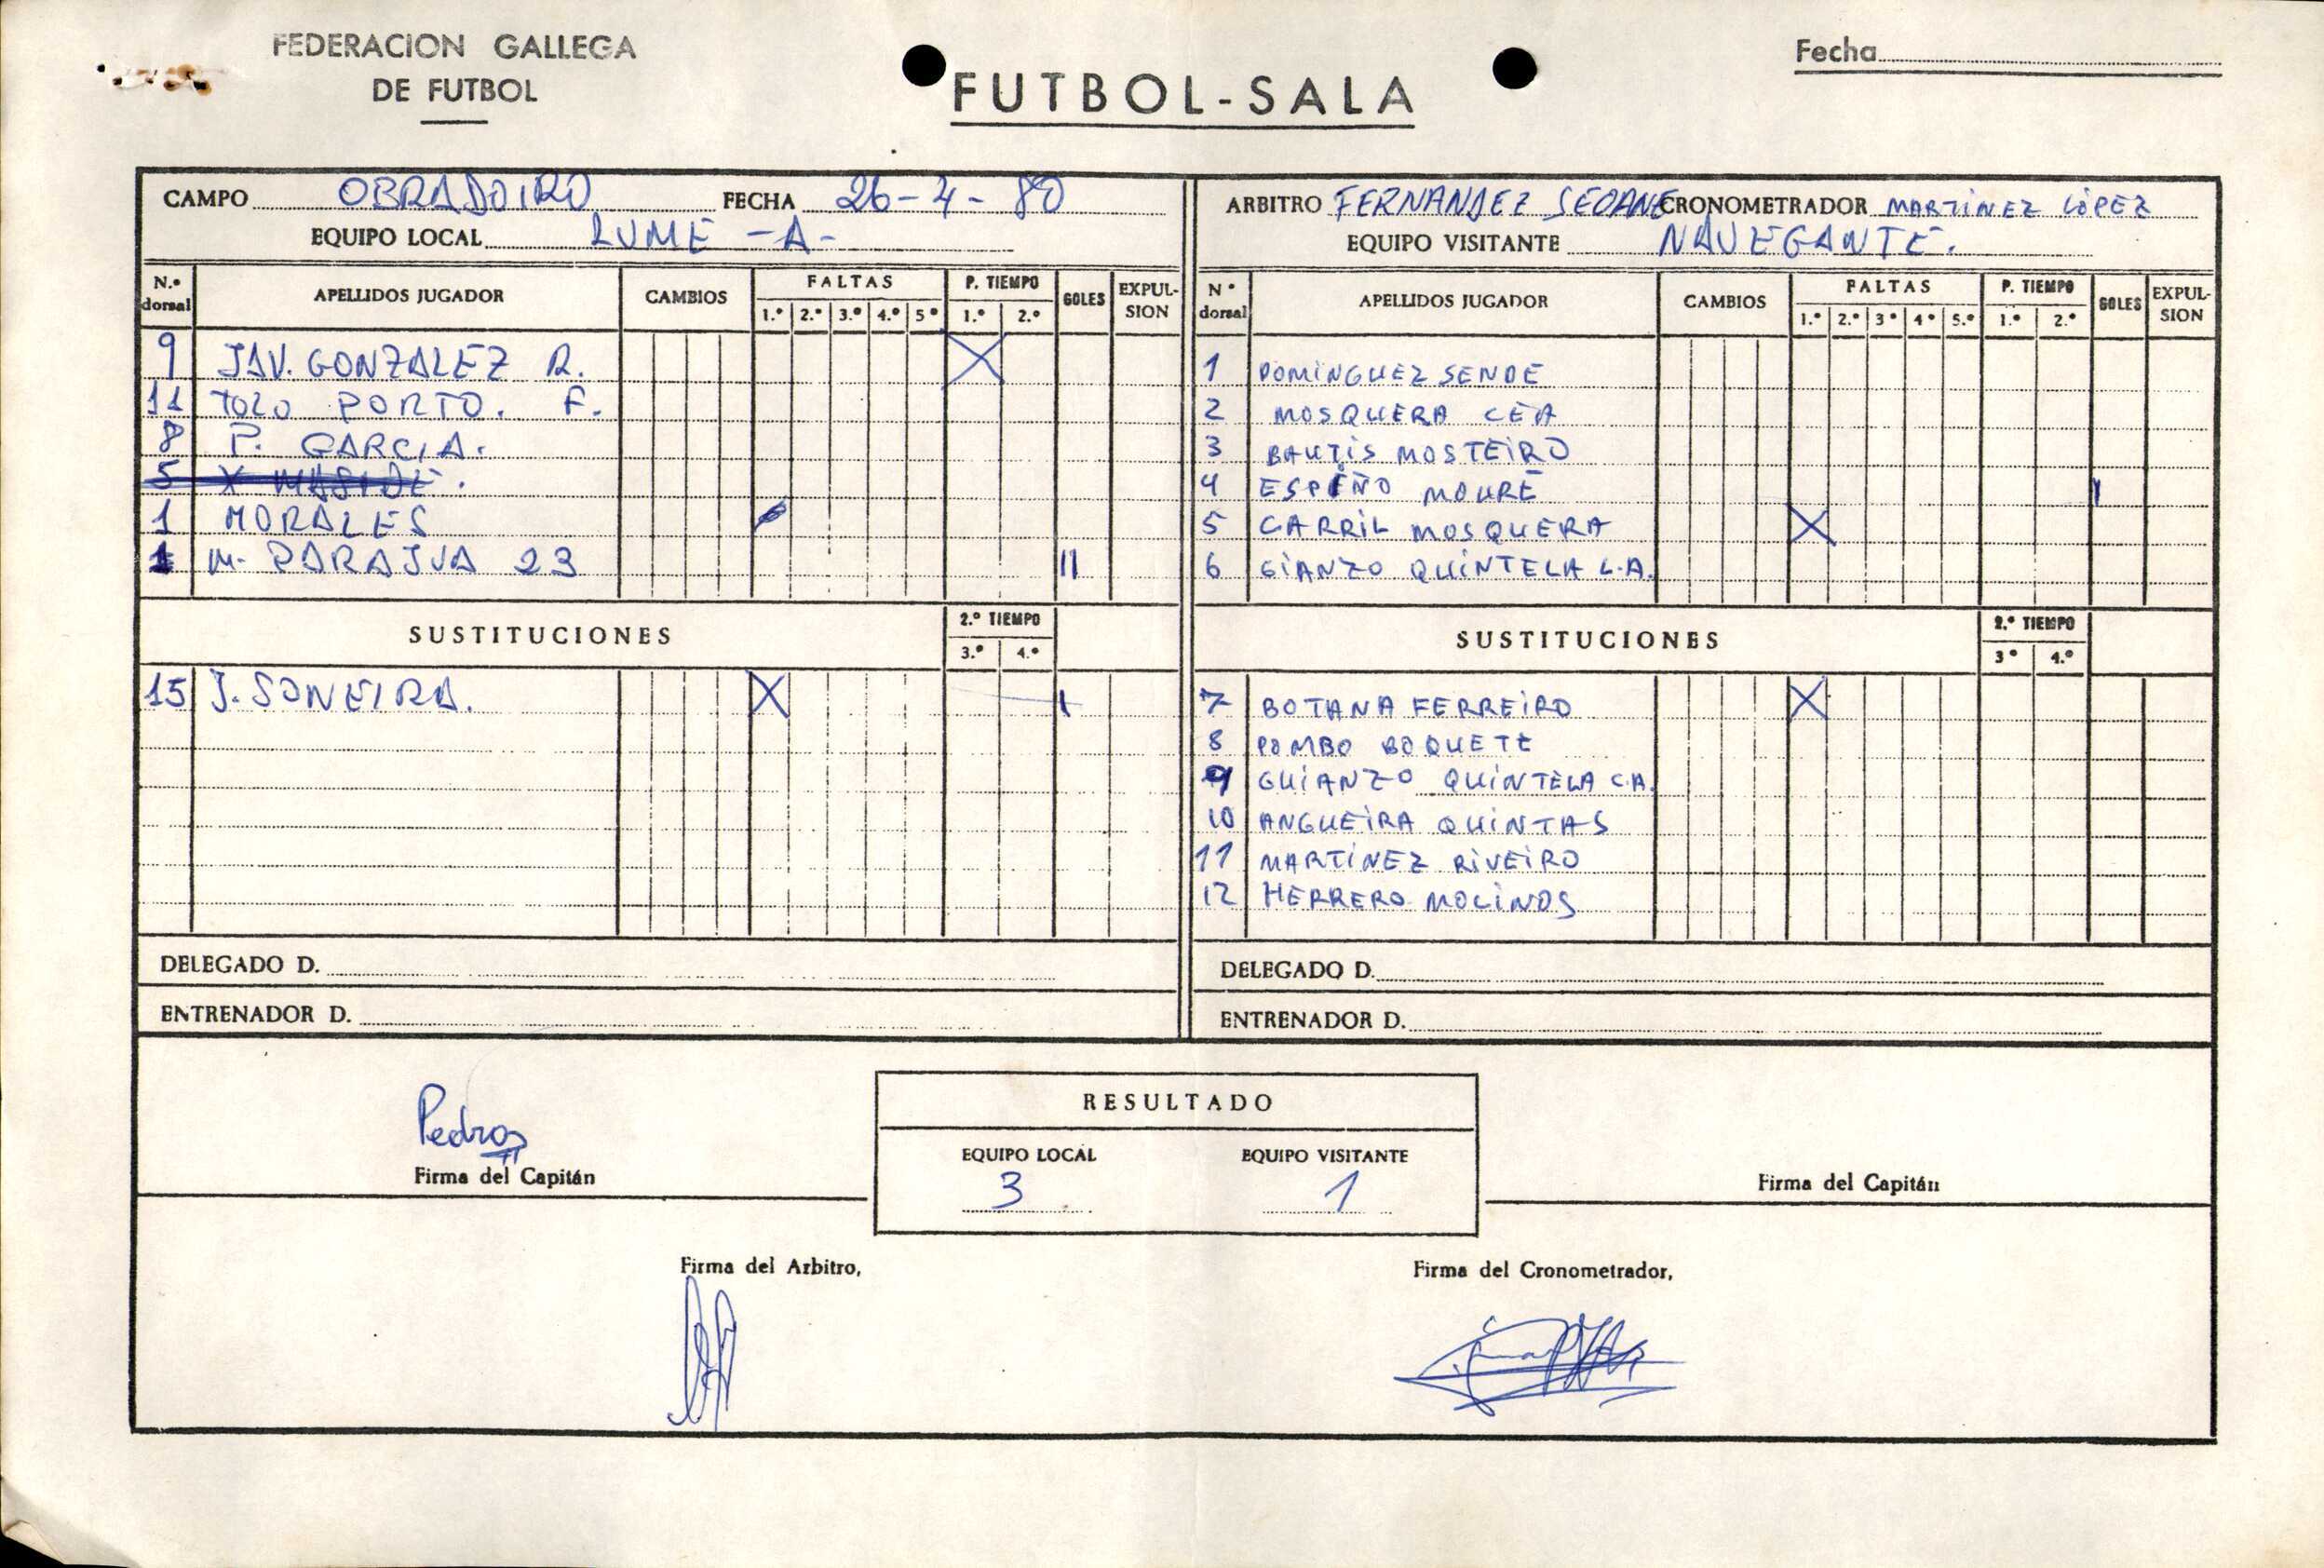 FEDERACION GALLEGA
DE FUTBOL
FUTBOL-SALA
Fecha
CAMPO OBRADOIRO FECHA 26-4-80
EQUIPO LOCAL LUME -A-
ARBITRO FERNANDEZ SEOANE CRONOMETRADOR MARTINEZ LÓPEZ
EQUIPO VISITANTE NAVEGANTE.
N.º dorsal APELLIDOS JUGADOR CAMBIOS FALTAS 1.º 2.º 3.º 4.º 5º P. TIEMPO 1.º 2.º GOLES EXPULSION
9 JAV. GONZALEZ R. X
11 TOLO PORTO. F.
8 P. GARCIA.
5 X MASIDE.
1 MORALES
1 M. PARAJUA 23 11
SUSTITUCIONES 2.º TIEMPO 3.º 4.º
15 J. SONEIRA. X 1
DELEGADO D.
ENTRENADOR D.
N º dorsal APELLIDOS JUGADOR CAMBIOS FALTAS 1.º 2.º 3º 4º 5.º P. TIEMPO 1.º 2.º GOLES EXPULSION
1 DOMINGUEZ SENDE
2 MOSQUERA CEA
3 BAUTIS MOSTEIRO
4 ESPIÑO MOURE 1
5 CARRIL MOSQUERA X
6 GIANZO QUINTELA L.A.
SUSTITUCIONES 2.º TIEMPO 3º 4.º
7 BOTANA FERREIRO X
8 POMBO BOQUETE
9 GUIANZO QUINTELA C.A.
10 ANGUEIRA QUINTAS
11 MARTINEZ RIVEIRO
12 HERRERO MOLINOS
DELEGADO D.
ENTRENADOR D.
Pedro
Firma del Capitán
RESULTADO
EQUIPO LOCAL EQUIPO VISITANTE
3 1
Firma del Capitán
Firma del Arbitro,
Firma del Cronometrador,